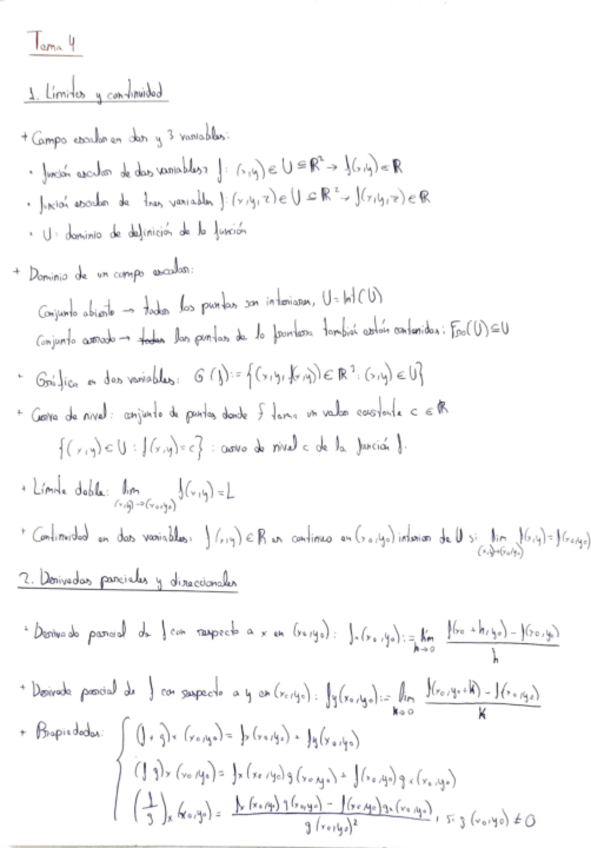 Tema 4
1. Límites y continuidad
+ Campo escalar en dos y 3 variables:
· función escalar de dos variables> f: (x,y) ∈ U ⊆ ℝ² → f(x,y) ∈ ℝ
· función escalar de tres variables f: (x,y,z) ∈ U ⊆ ℝ² → f(x,y,z) ∈ ℝ
· U: dominio de definición de la función
+ Dominio de un campo escalar:
Conjunto abierto → todos los puntos son interiores, U = Int(U)
Conjunto cerrado → todos los puntos de la frontera también están contenidos: Fro(U) ⊆ U
· Gráfica en dos variables: G(f) := {(x,y,f(x,y)) ∈ ℝ³: (x,y) ∈ U}
+ Curva de nivel: conjunto de puntos donde f toma un valor constante c ∈ ℝ
{(x,y) ∈ U : f(x,y) = c} : curva de nivel c de la función f.
+ Límite doble: lim (x,y)→(x₀,y₀) f(x,y) = L
+ Continuidad en dos variables: f(x,y) ∈ ℝ es continua en (x₀,y₀) interior de U si lim (x,y)→(x₀,y₀) f(x,y) = f(x₀,y₀)
2. Derivadas parciales y direccionales
· Derivada parcial de f con respecto a x en (x₀,y₀): fₓ(x₀,y₀) := lim h→0 f(x₀+h,y₀) - f(x₀,y₀) / h
+ Derivada parcial de f con respecto a y en (x₀,y₀): fy(x₀,y₀) := lim k→0 f(x₀,y₀+k) - f(x₀,y₀) / k
+ Propiedades: { (f+g)ₓ(x₀,y₀) = fₓ(x₀,y₀) + fy(x₀,y₀)
(f g)ₓ(x₀,y₀) = fₓ(x₀,y₀) g(x₀,y₀) + f(x₀,y₀) gₓ(x₀,y₀)
(f/g)ₓ(x₀,y₀) = fₓ(x₀,y₀) g(x₀,y₀) - f(x₀,y₀) gₓ(x₀,y₀) / g(x₀,y₀)², si g(x₀,y₀) ≠ 0